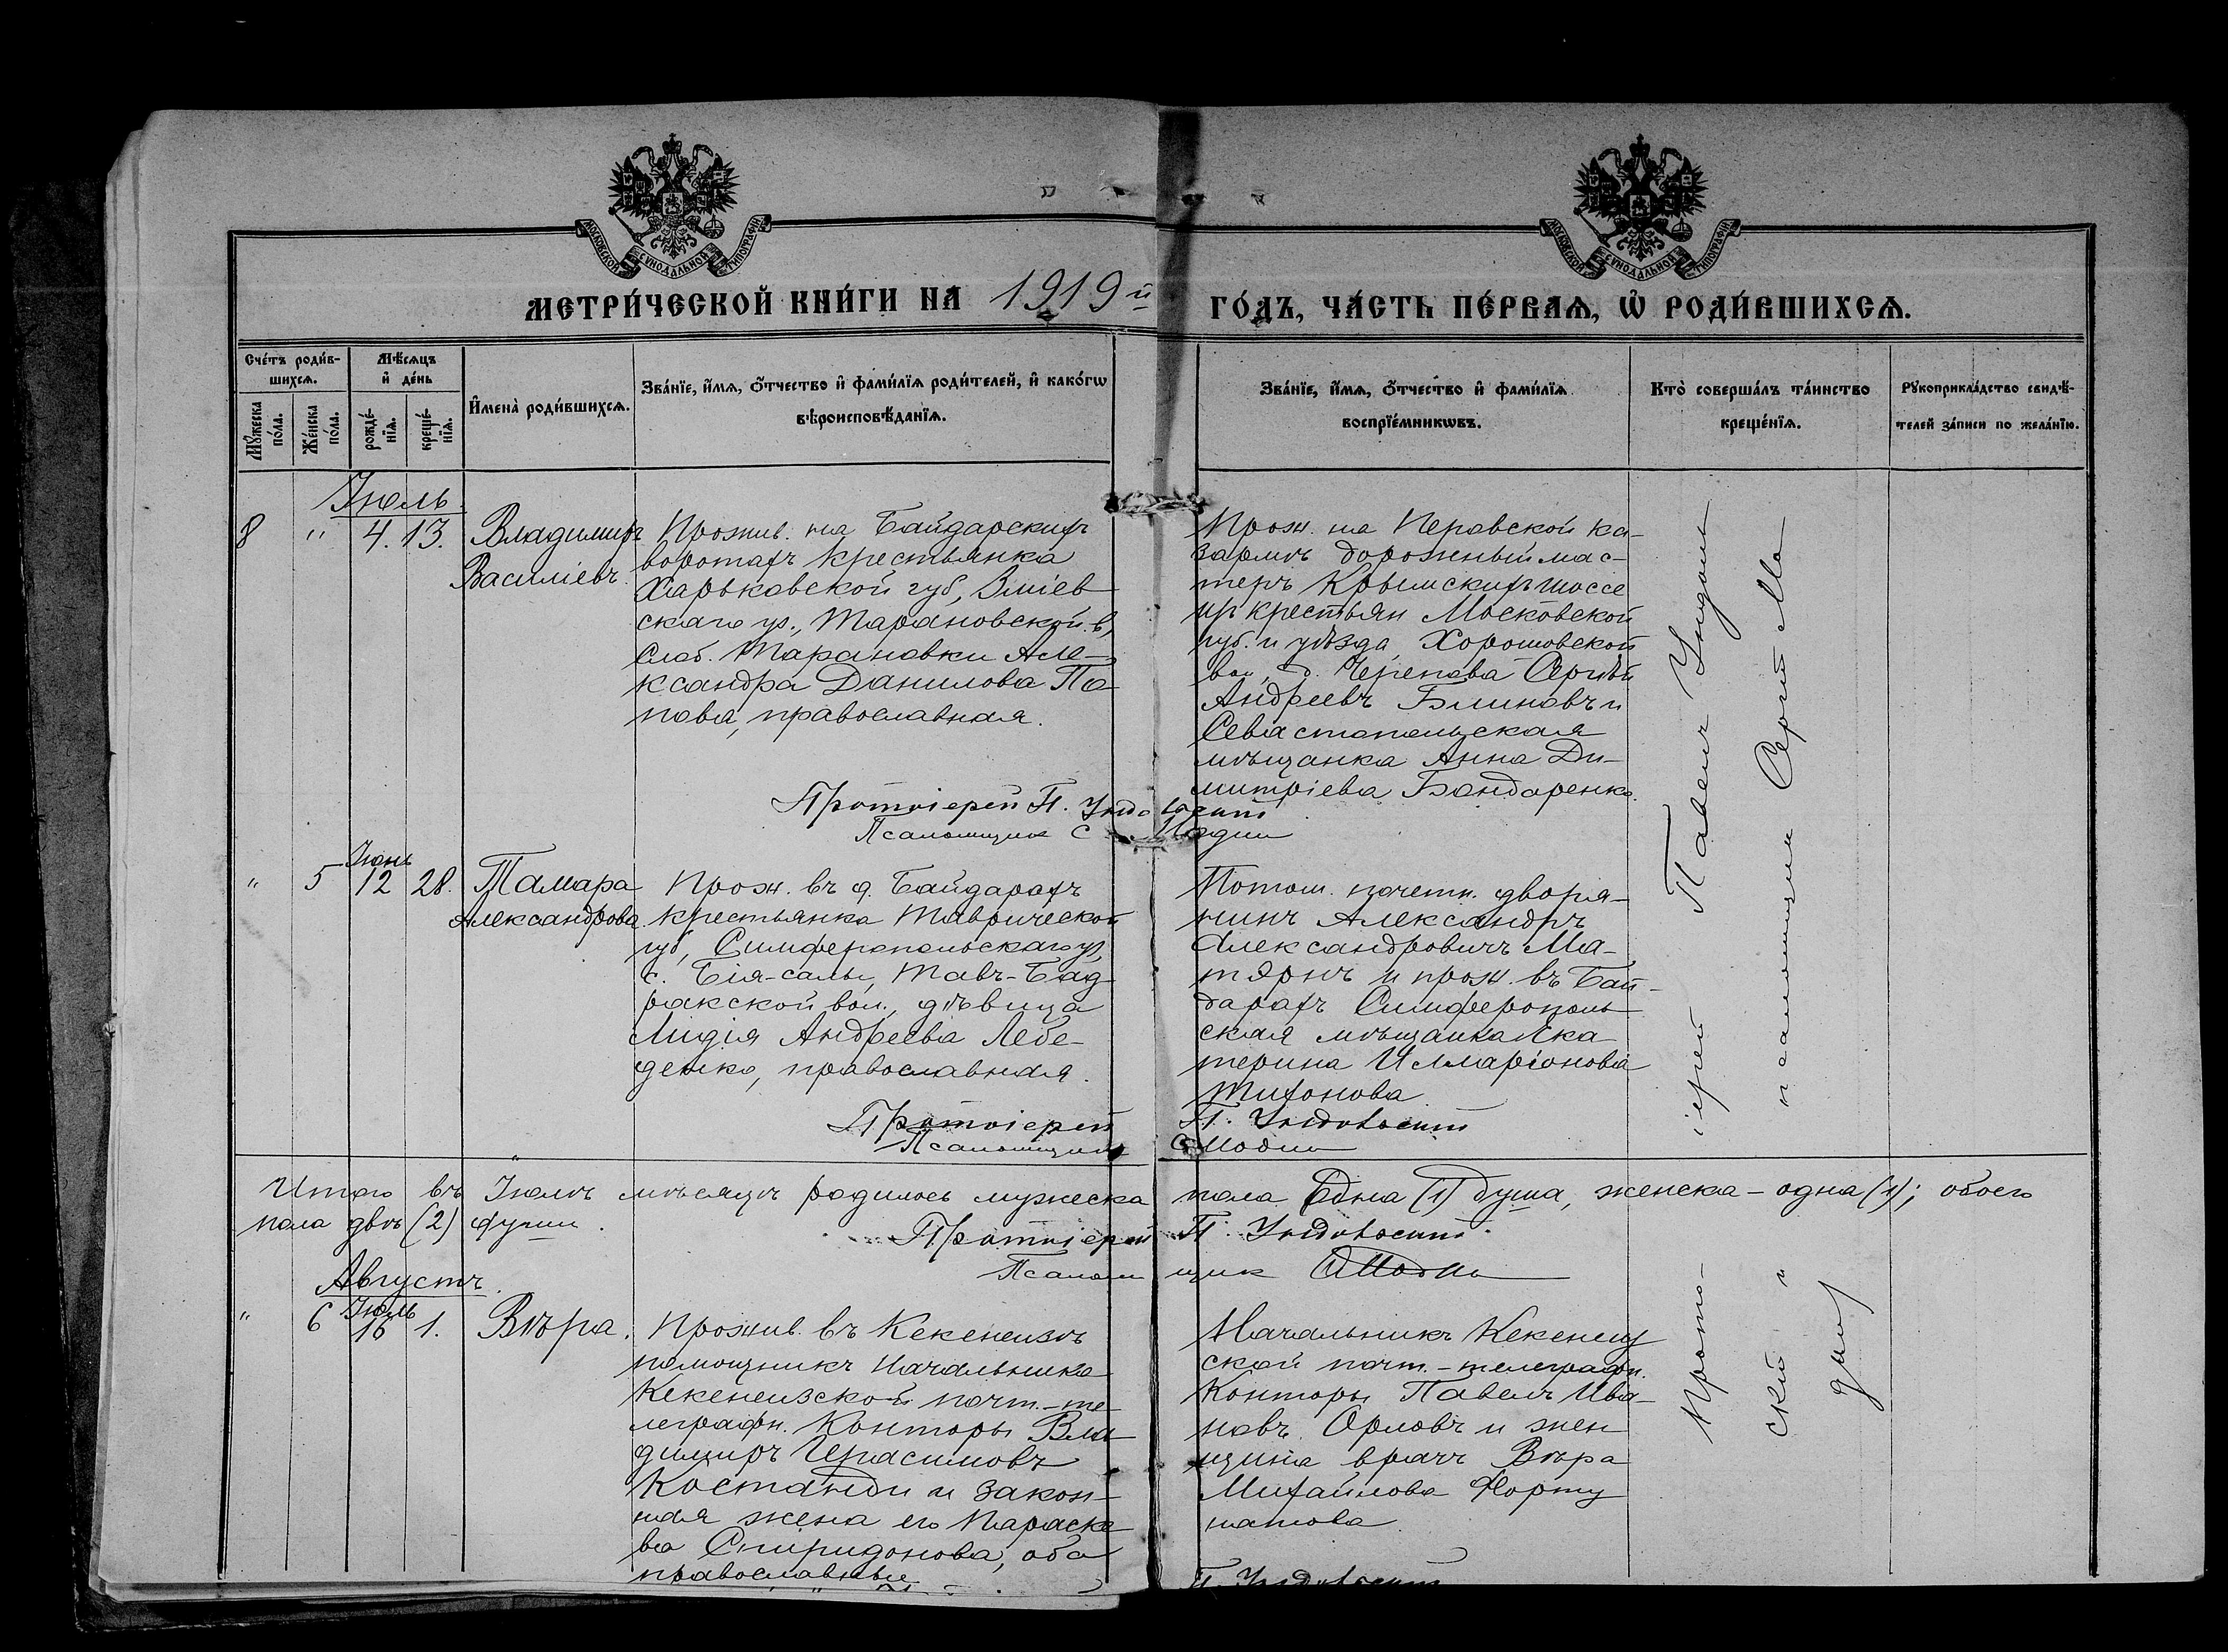 МОСКОВСКОЙ СѴНОДАЛЬНОЙ ТИПОГРАФІИ
МОСКОВСКОЙ СѴНОДАЛЬНОЙ ТИПОГРАФІИ
МЕТРИ́ЧЕСКОЙ КНИ́ГИ НА 1919й
ГО́ДЪ, ЧА́СТЬ ПЕ́РВАѦ, Ѡ҆ РОДИ́ВШИХСѦ.
Сче́тъ роди́в-
шихсѧ.
Мѣ́сѧцъ
и҆ де́нь
Мꙋ́жеска
по́ла.
Же́нска
по́ла.
рожде́-
нїѧ.
креще́-
нїѧ.
И҆мена̀ роди́вшихсѧ.
Зва́нїе, и҆́мѧ, ѻ҆́тчество и҆ фами́лїѧ роди́телей, и҆ како́гѡ
вѣроисповѣ́данїѧ.
Зва́нїе, и҆́мѧ, ѻ҆́тчество и҆ фами́лїѧ
воспрїе́мникѡвъ.
Кто̀ соверша́лъ та́инство
креще́нїѧ.
Рꙋкоприкла́дство свидѣ́-
телей за́писи по жела́нїю.
Іюль
8 " 4. 13. Владимиръ
Василіевъ.
Прожив. на Байдарскихъ
воротахъ крестьянка
Харьковской губ, Зміев
скаго уз., Тарановской в,
Слоб. Тарановки Але-
ксандра Данилова По
пова, православная.
Прож. на Перовской ка-
зармѣ дорожный мас-
теръ Крымскихъ шоссе
изъ крестьян Московской
губ. и уѣзда, Хорошовской
вол., д. Черепова Сергѣй
Андреевъ Блиновъ и
Севастопольская
мѣщанка Анна Ди-
митріева Бондаренко.
Протоіерей П. Ундольскій
Псаломщик С Модин
" 5 Іюнь
12 28. Тамара
Александрова
Прож. въ д. Байдарахъ
крестьянка Таврической
губ, Симферопольскаго уз,
с. Бія-салы, Тавъ-Бад
ракской вол., дѣвица
Лидія Андреева Лебе-
денко, православная.
Потом. почетн. дворя-
нинъ Александръ
Александровичъ Ма-
тэрнъ и прож. въ Бай-
дарахъ Симферополь
ская мѣщанка Ека
терина Илларіонова
Тихонова
Протоіерей П. Ундольскій
Псаломщик С Модин
іерей Павелъ Ундоль
псаломщик Сергій Мо
Итого въ Іюлѣ мѣсяцѣ родилось мужеска пола Одна (1) душа, женска - одна (1); обоего
пола двѣ (2) души.
Протоіерей П. Ундольскій.
Псаломщик СМодин
Августъ.
" 6 Іюль
16 1. Вѣра.
Прожив. въ Кекенеизѣ
помощникъ Начальника
Кекенеизской почт.-те
леграфн. Конторы Вла
димиръ Герасимовъ
Костанди и закон-
ная жена его Параске
ва Спиридонова, оба
православные
Начальникъ Кекенеиз
ской почт.-телеграфн.
Конторы Павелъ Ива-
новъ Орловъ и жен
щина врачъ Вѣра
Михайлова Форту
натова.
Прото-
скій и
динъ
П. Ундольскій